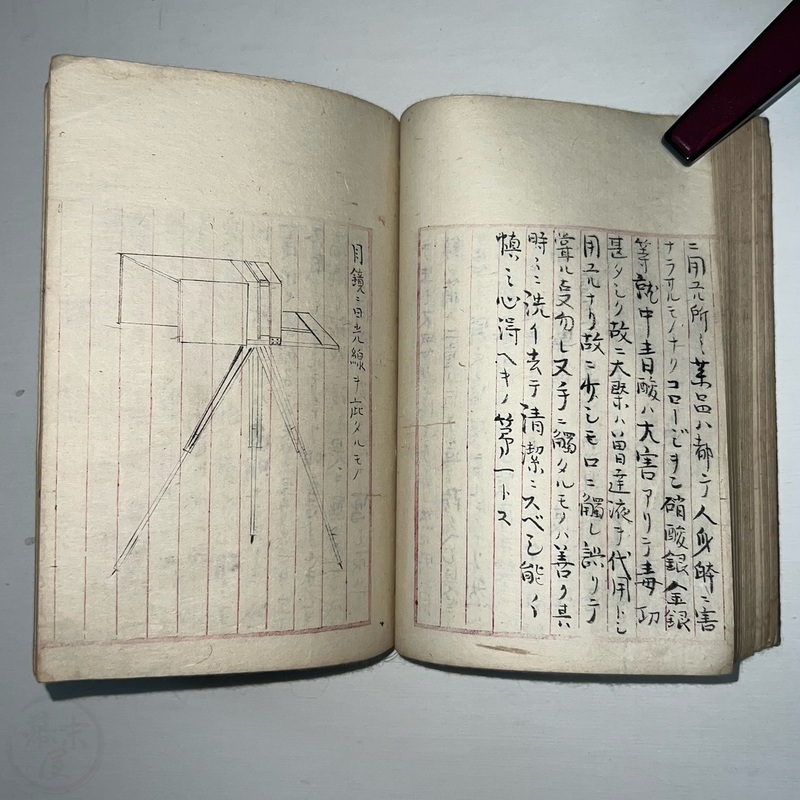 ニ用ユル所ノ薬品ハ都テ人身ニ害
ナラサルモノナクコロージヲン硝酸銀金銀
等就中青酸ハ大害アリテ毒功
甚タシク故ニ大槩ハ曹達液ヲ代用トシ
用ユルナリ故ニ少シモ口ニ觸レ誤リテ
嘗ル㕝勿レ又手ニ觸タルモノハ善ク其
時々ニ洗イ去テ清潔ニスベシ能ク
慎ミ心得ヘキノ第一トス
目鏡ニ日光線ヲ庇タルモノ